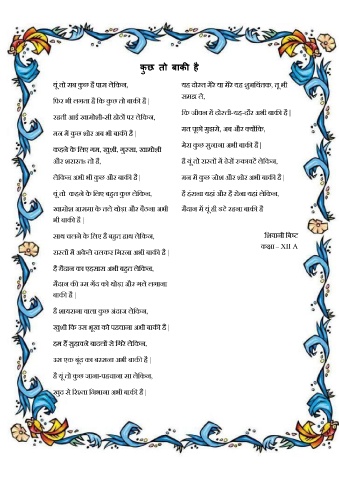 कुछ तो बाकी है
यूं तो सब कुछ है पास लेकिन,
फिर भी लगता है कि कुछ तो बाकी है |
रहती आई खामोशी-सी होठों पर लेकिन,
मन में कुछ शोर अब भी बाकी है |
कहने के लिए गम, खुशी, गुस्सा, खामोशी
और शरारत तो है,
लेकिन अभी भी कुछ और बाकी है |
यूं तो कहने के लिए बहुत कुछ लेकिन,
खामोश आसमा के तले थोड़ा और बैठना अभी
भी बाकी है |
साथ चलने के लिए हैं बहुत हाथ लेकिन,
रास्तों में अकेले चलकर गिरना अभी बाकी है |
है मैदान का एहसास अभी बहुत लेकिन,
मैदान की उस गेंद को थोड़ा और गले लगाना
बाकी है |
है शायराना वाला कुछ अंदाज लेकिन,
खुशी कि उस भूख को पहचाना अभी बाकी है |
हम हैं सुहावने बादलों से घिरे लेकिन,
उस एक बूंद का बरसना अभी बाकी है |
है यूं तो कुछ जाना-पहचाना सा लेकिन,
खुद से रिश्ता निभाना अभी बाकी है |
यह दोस्त मेरे या मेरे यह शुभचिंतक, तू भी
समझ ले,
कि जीवन में दोस्ती-यह-दौर अभी बाकी है |
मत पूछो मुझसे, अब और क्योंकि,
मेरा कुछ सुनाना अभी बाकी है |
हैं यूं तो रास्तों में ढेरों रुकावटें लेकिन,
मन में कुछ जोश और शोर अभी बाकी है |
है हंसना यहां और है रोना यहां लेकिन,
मैदान में यूं ही डटे रहना बाकी है
शिवानी बिष्ट
कक्षा - XII A